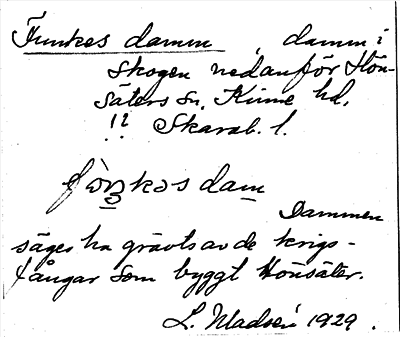 Funkes damm, damm i
skogen nedanför Hön-
säters sn. Kinne hd.
!? Skarab. l.
dam
Dammen
säges ha grävts av de krigs-
fångar som byggt Hönsäter.
L. 1929.